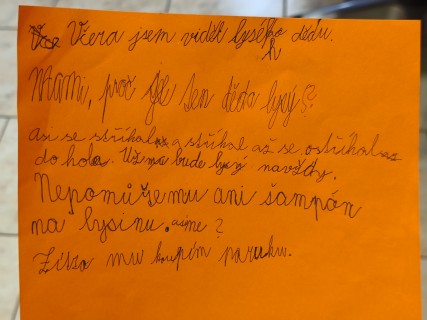 Včera jsem viděl lysého dědu.
Mami, proč je ten děda lysý?
Asi se stříkal a stříkal až se ostříkal
do hola. Už bude lysý navždy.
Nepomůže mu ani šampón
na lysinu,
Zítra mu koupím paruku.